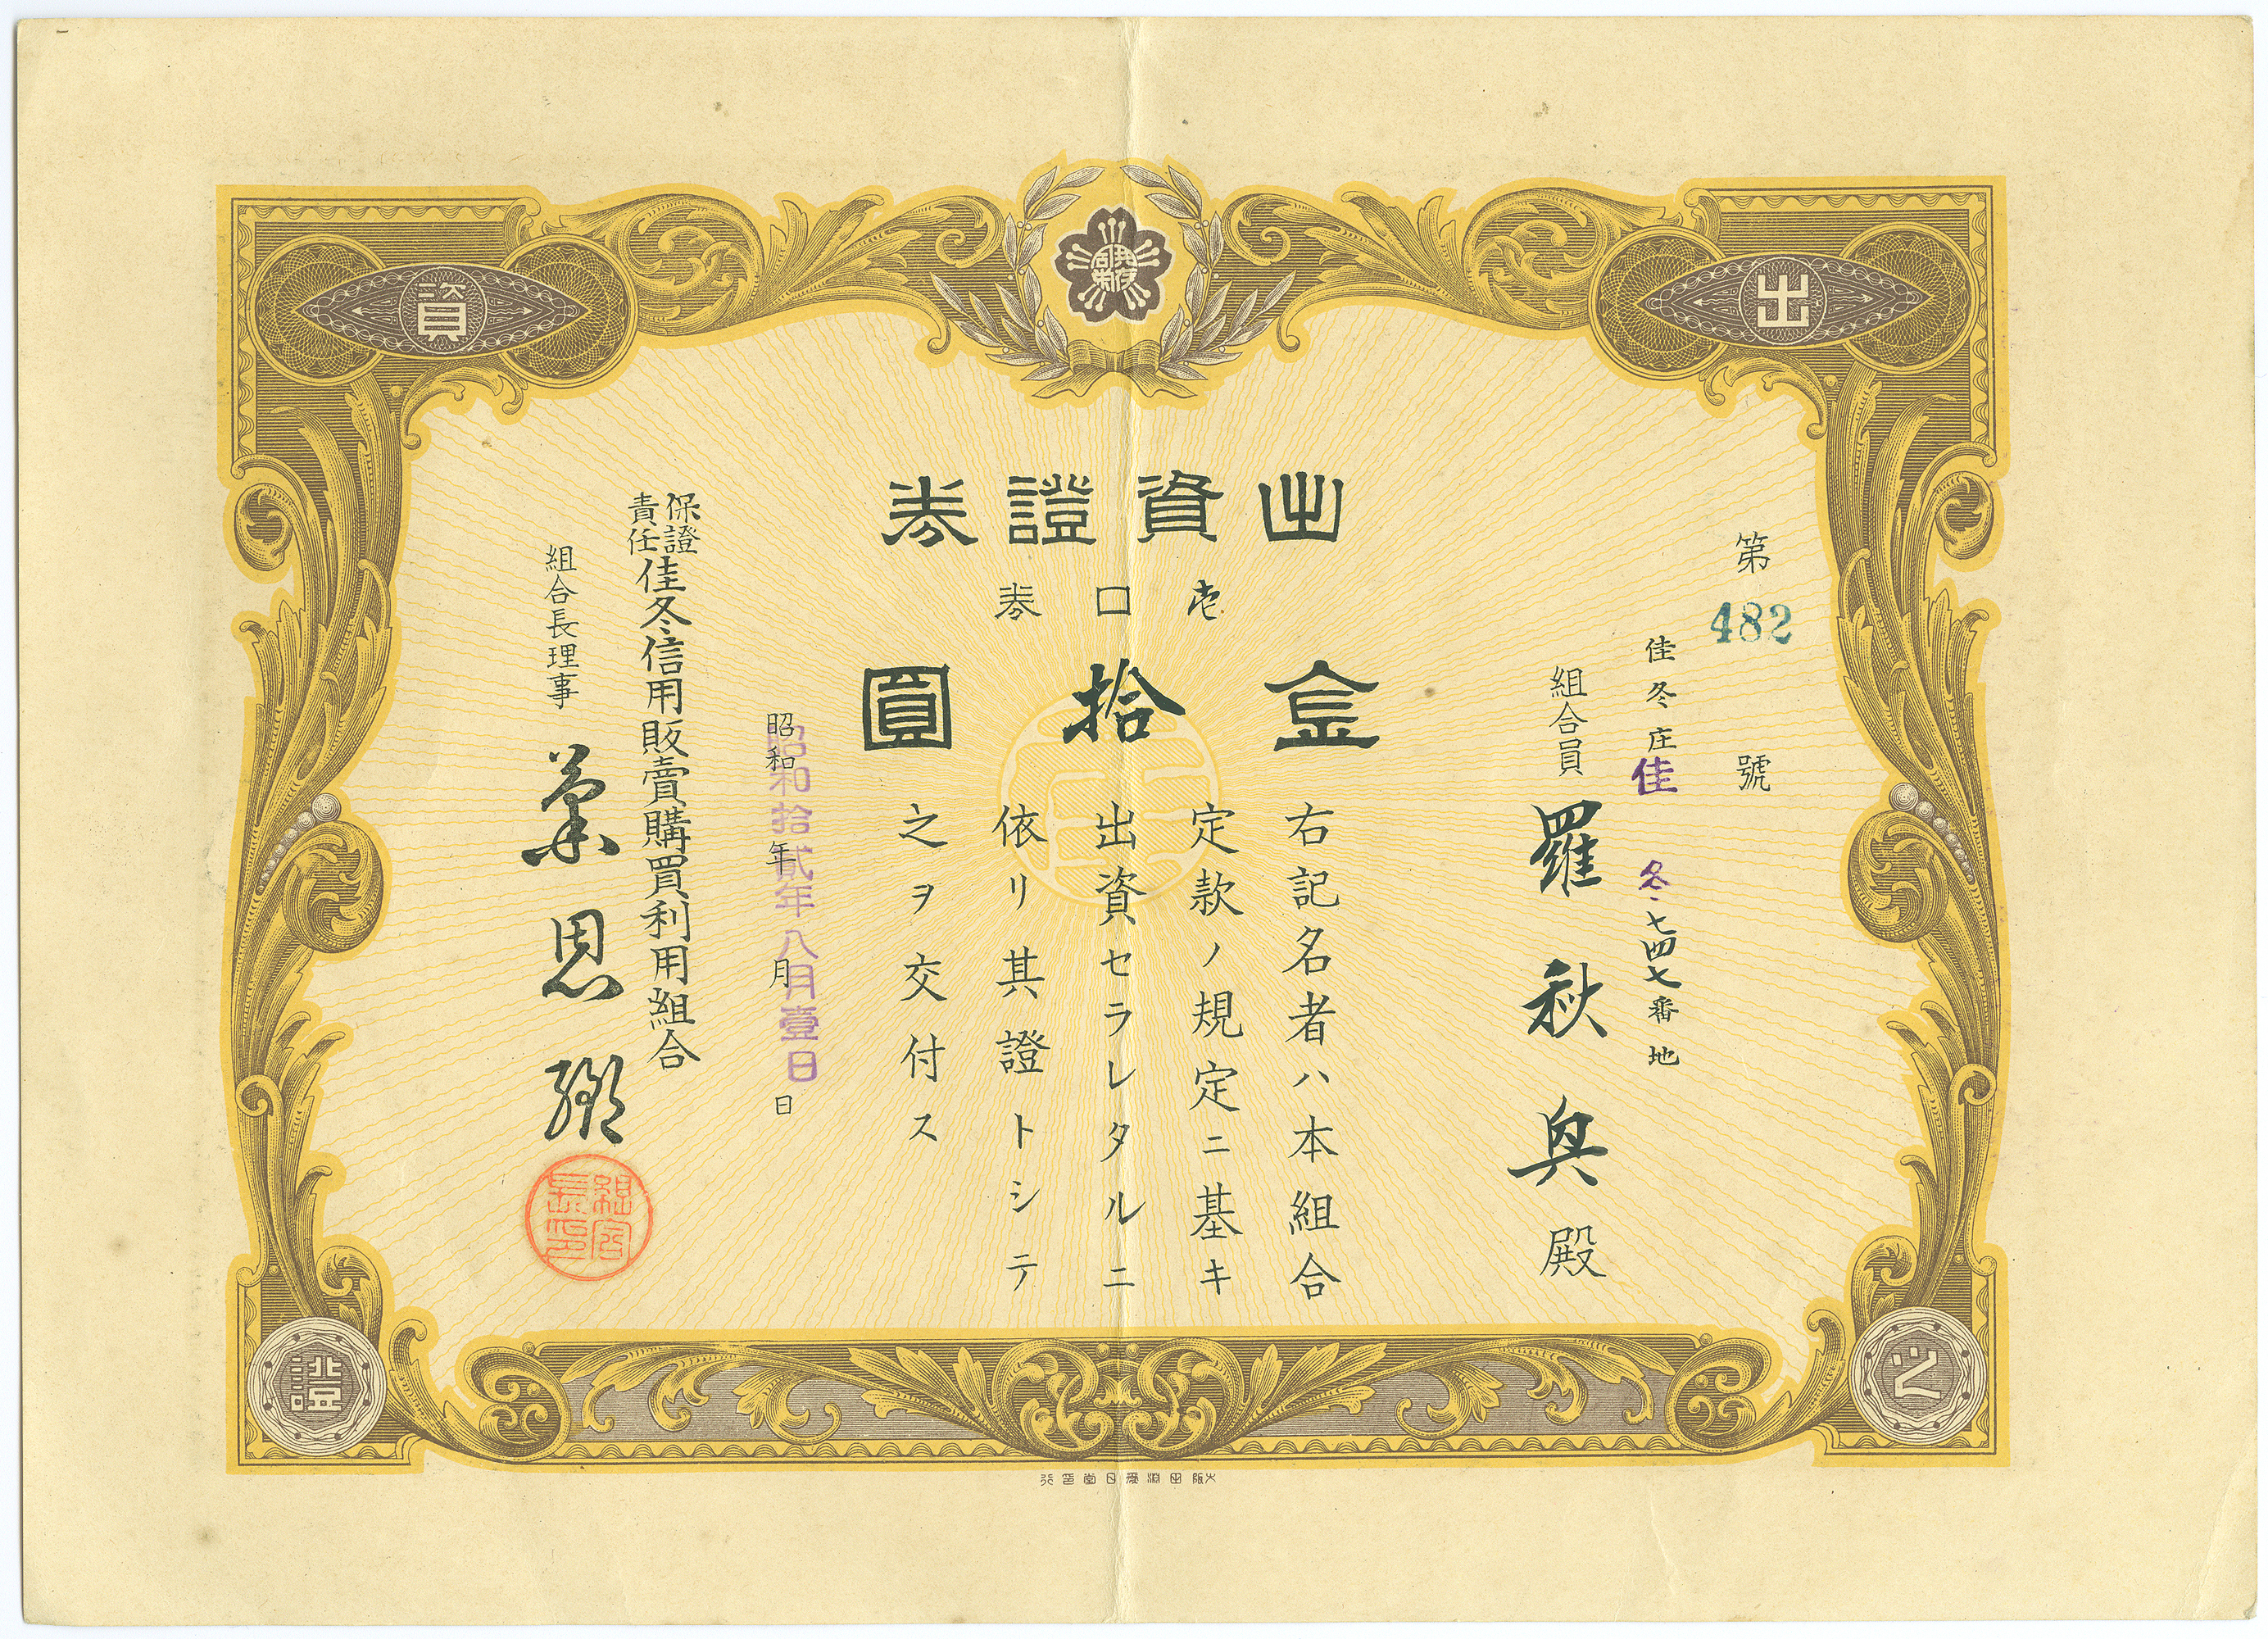 出
資
之
證
共存
同栄
出資證券
壱口券
金拾圓
第482號
佳冬庄佳冬七四七番地
組合員 羅秋興殿
右記名者ハ本組合
定款ノ規定ニ基キ
出資セラレタルニ
依リ其證トシテ
之ヲ交付ス
昭和 年 月 日
昭和拾貳年八月壹日
保證責任佳冬信用販賣購買利用組合
組合長理事 葉恩
組合長印